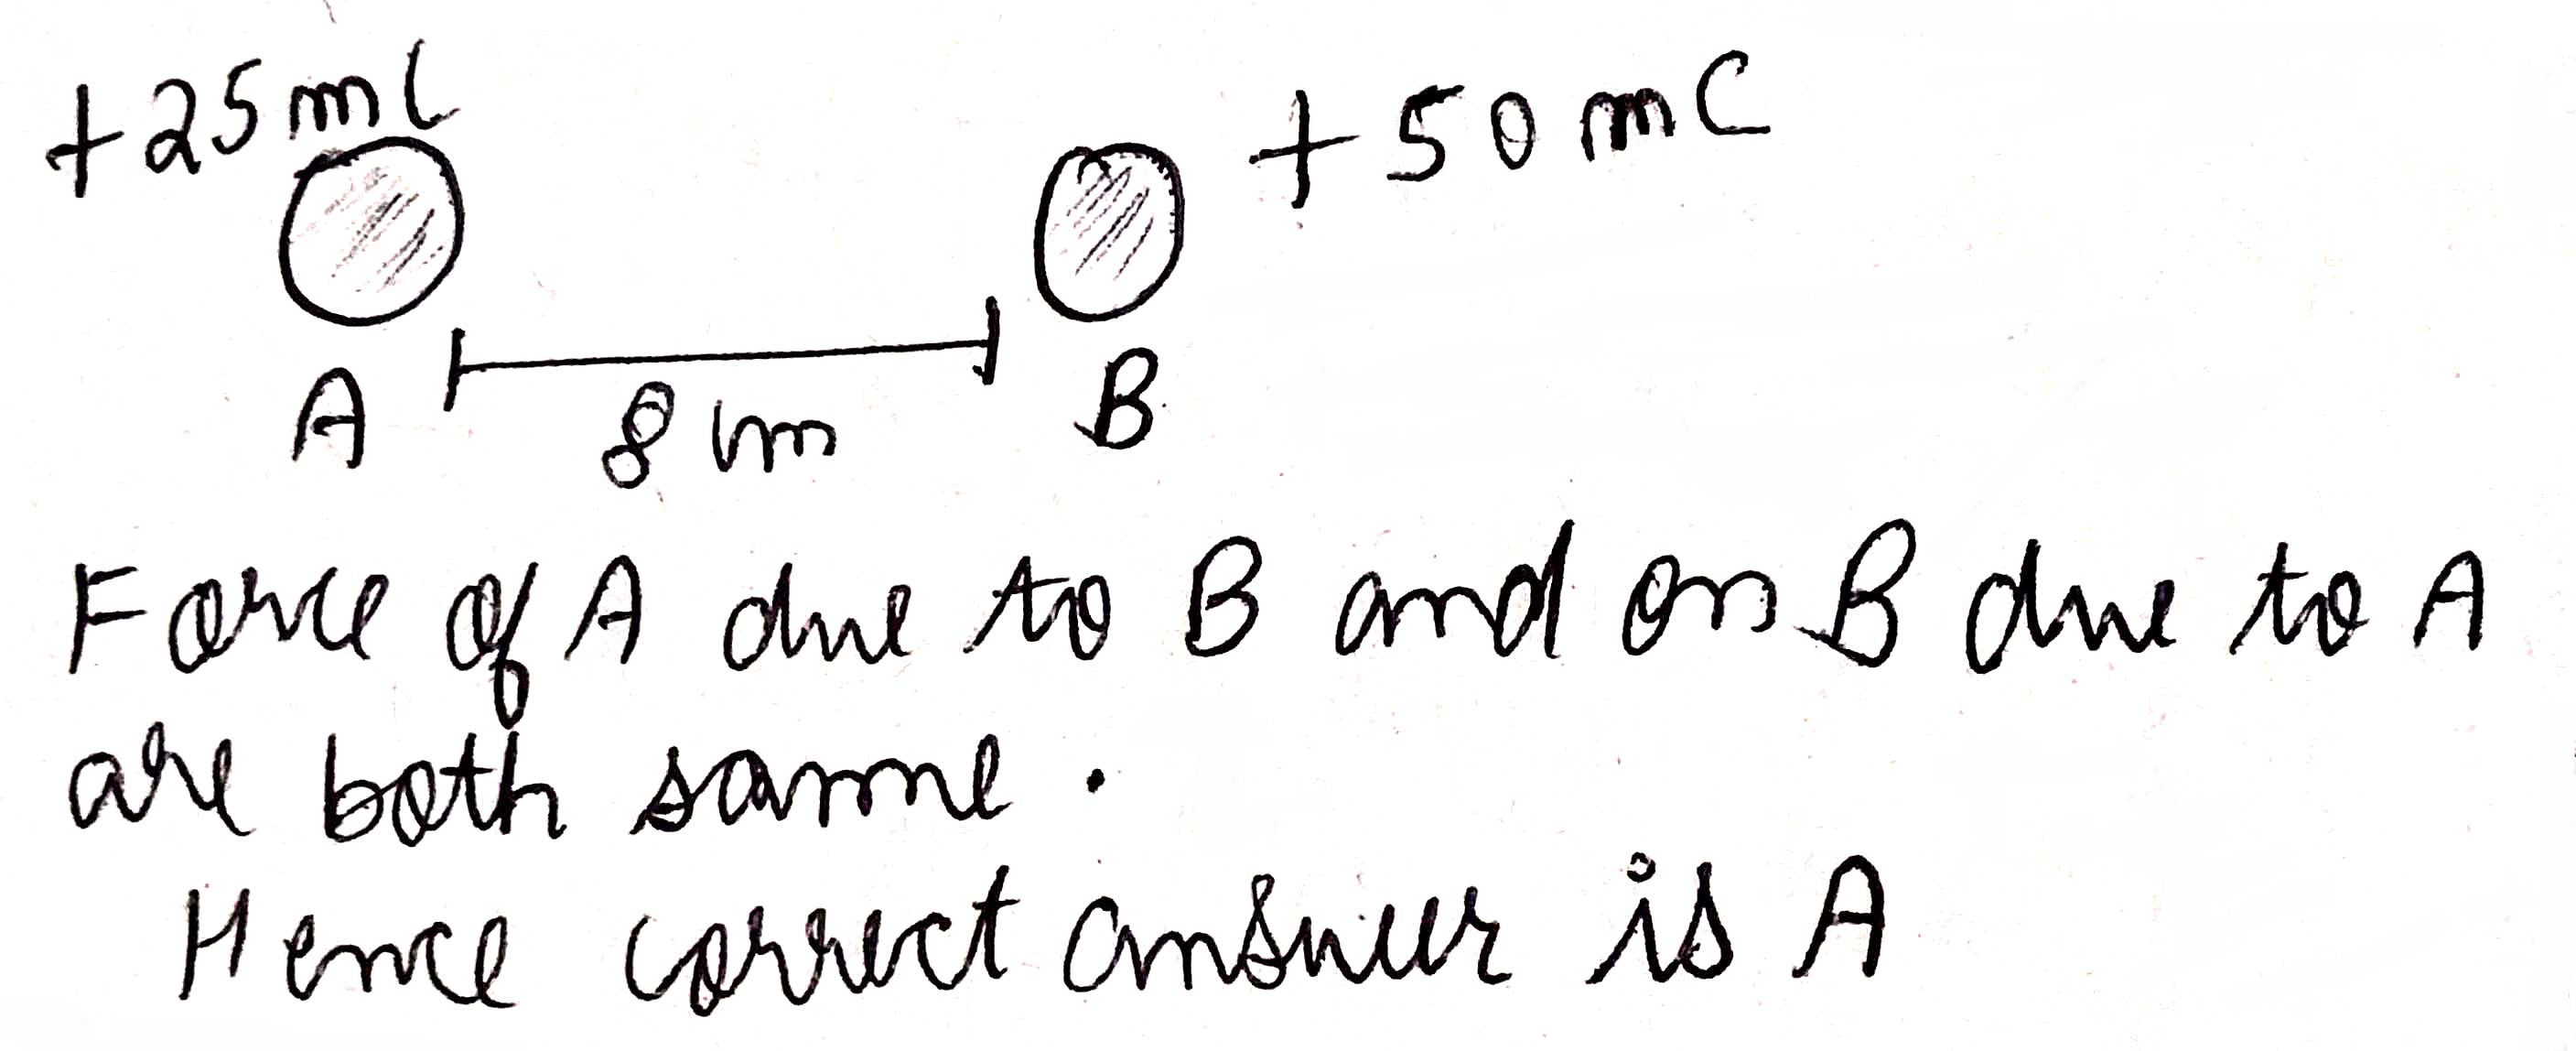 +25mC
+50 mC
A
B
8 cm
Force of A due to B and on B due to A
are both same.
Hence correct answer is A